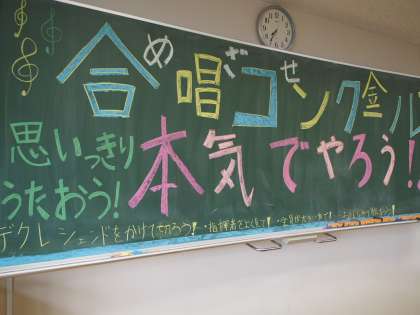 合唱コンクール
めざせ金
思いっきり
うたおう!
本気でやろう!!
デクレシェンドをかけて切ろう! ・指揮者をよく見て!